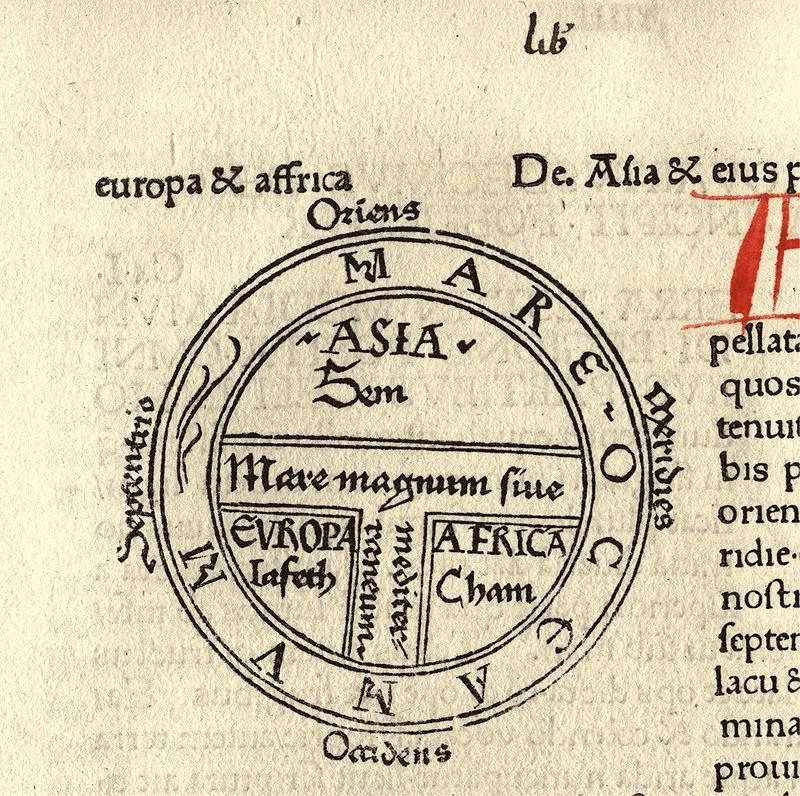 lib
europa & affrica
De. Asia & eius p
Oriens
MARE OCEANVM
ASIA
Sem
Septentrio
Meridies
Mare magnum siue
EVROPA
Iafeth
mediter
raneum
AFRICA
Cham
Occidens
pellata
quos
tenuit
bis p
orien
ridie
nostr
septen
lacu &
mina
proui